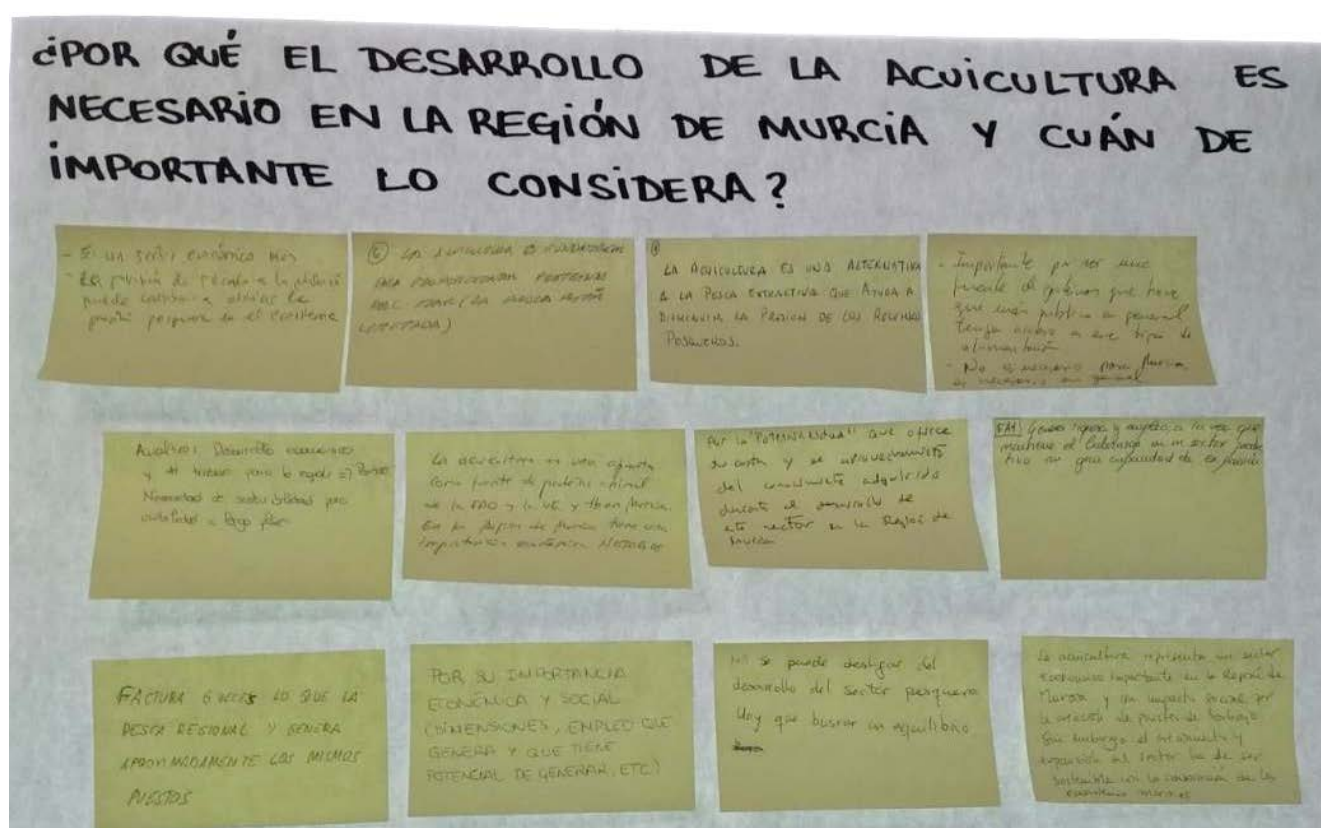 ¿POR QUÉ EL DESARROLLO DE LA ACUICULTURA ES
NECESARIO EN LA REGIÓN DE MURCIA Y CUÁN DE
IMPORTANTE LO CONSIDERA?
- Es un sector económico más
- La
puede a aliviar la
pesquera en el ecosistema
⑥ LA ACUICULTURA ES FUNDAMENTAL
PARA PROTEINAS
DEL MAR (LA PESCA
LIMITADA)
LA ACUICULTURA ES UNA ALTERNATIVA
A LA PESCA EXTRACTIVA QUE AYUDA A
DISMINUIR LA PRESION DE LOS RECURSOS
PESQUEROS.
- Importante por ser una
fuente de que hace
que público en general
tenga acceso a ese tipo de
alimentación
- No es necesario para Murcia,
es necesario en general
Desarrollo económico
y de para la región =>
Necesidad de sostenibilidad para
a largo plazo
La acuicultura es una apuesta
como fuente de proteína animal
de la FAO y la UE y
En la Región de Murcia tiene una
importancia económica NOTABLE
Por la "POTENCIALIDAD" que ofrece
su costa y el aprovechamiento
del conocimiento adquirido
durante el desarrollo de
este sector en la Región de
Murcia
Genera riqueza y empleo, a la vez que
mantiene el liderazgo en un sector
con gran capacidad de expansión
FACTURA 6 VECES LO QUE LA
PESCA REGIONAL Y GENERA
APROXIMADAMENTE LOS MISMOS
PUESTOS
POR SU IMPORTANCIA
ECONÓMICA Y SOCIAL
(DIMENSIONES, EMPLEO QUE
GENERA Y QUE TIENE
POTENCIAL DE GENERAR, ETC)
No se puede desligar del
desarrollo del sector pesquero
Hay que buscar un equilibrio
La acuicultura representa un sector
económico importante en la Región de
Murcia y un impacto social por
la creación de puestos de trabajo
Sin embargo el crecimiento y
expansión del sector ha de ser
sostenible con la conservación de los
ecosistemas marinos